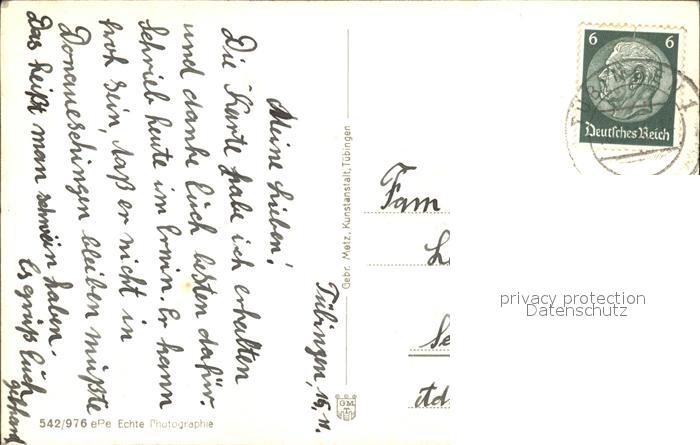 Tübingen, 15. 11.
Meine Lieben!
Die Karte habe ich erhalten
und danke Euch besten dafür.
Schrieb heute im Erwin. Er kann
froh sein, daß er nicht in
Donaueschingen bleiben müßte
Das heißt man schwein haben.
Es grüßt Euch
Gebr. Metz, Kunstanstalt, Tübingen
542/976 ePe Echte Photographie
GM
6 6
Deutsches Reich
Fam
privacy protection
Datenschutz